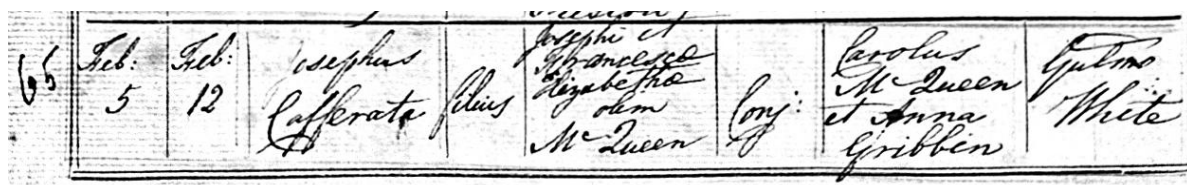 65
Feb: 5
Feb: 12
Josephus
Cafferata
filius
Josephi et
Francescæ
Elizabethæ
olim
McQueen
Conj:
Carolus
McQueen
et Anna
Gribbin
White